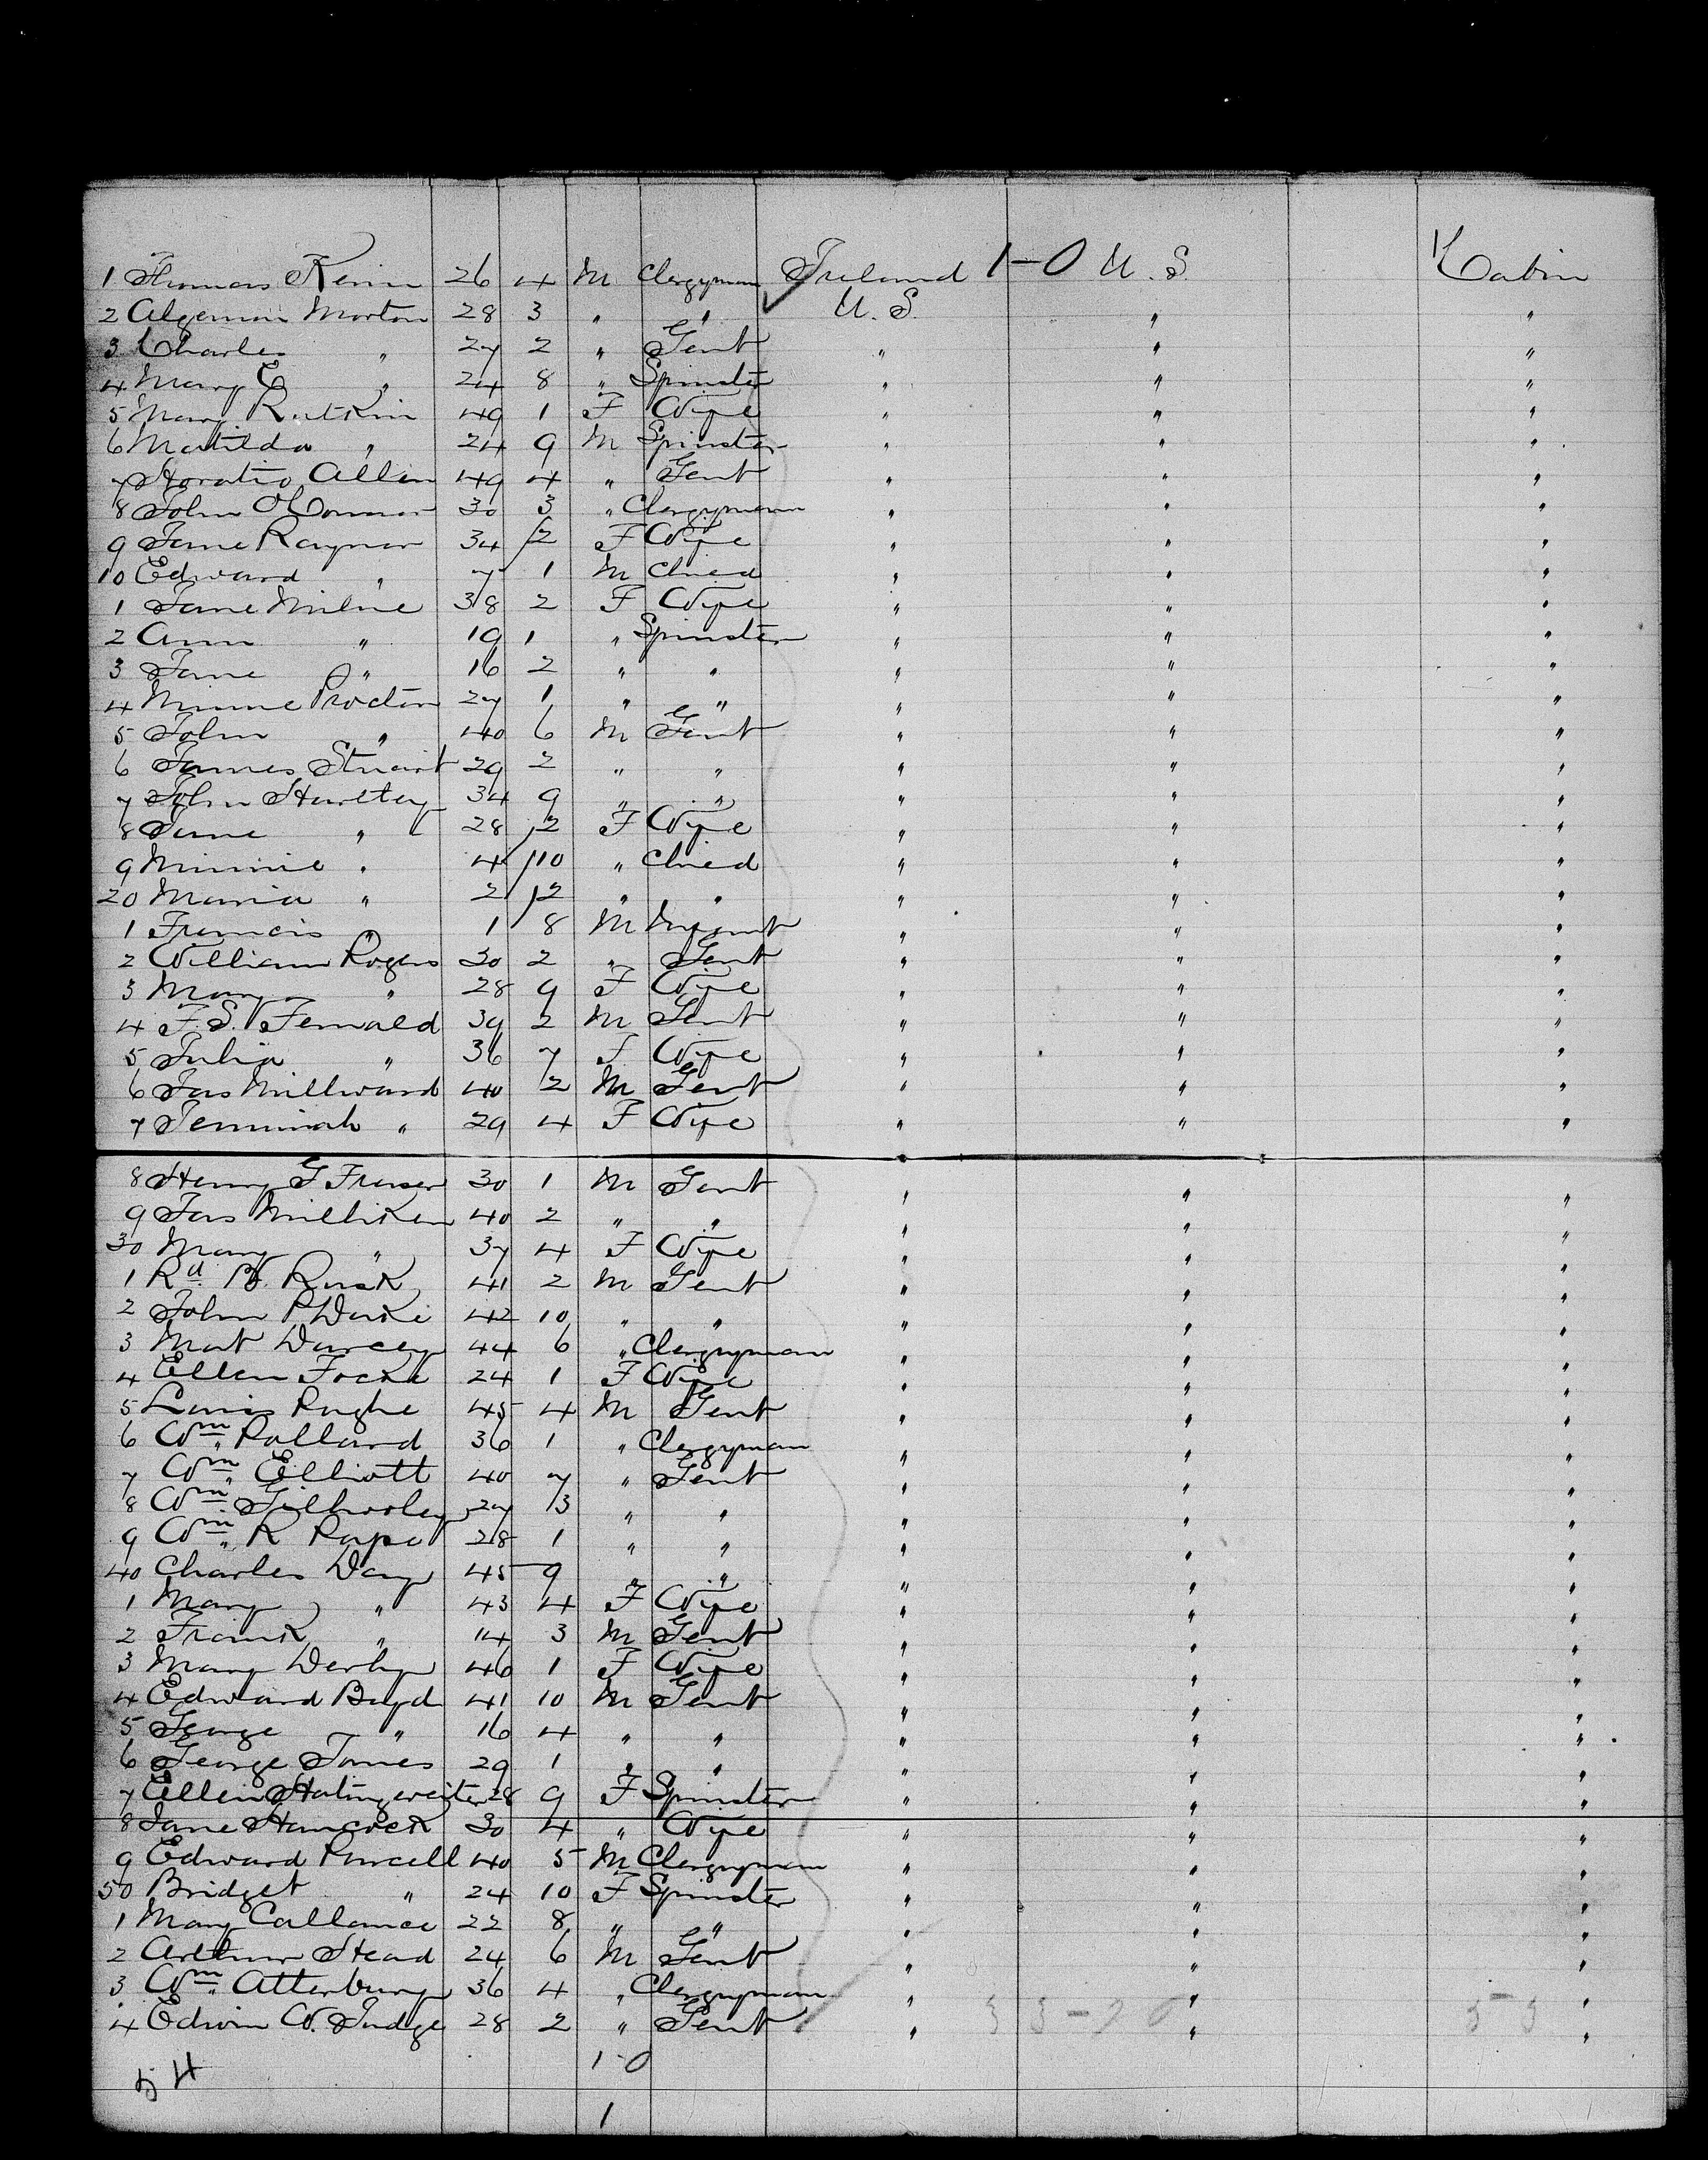 1 Thomas Kevin 26 4 M Clergyman Ireland 1-0 U.S. Cabin
2 Algernon Morton 28 3 " " U.S. " "
3 Charles " 27 2 " Gent " " "
4 Mary E " 24 8 " Spinster " " "
5 Mary Rutkin 49 1 F Wife " " "
6 Matilda " 24 9 M Spinster " " "
7 Horatio Allen 49 4 " Gent " " "
8 John O'Connor 30 3 " Clergyman " " "
9 Jane Raynor 34 2 F Wife " " "
10 Edward " 7 1 M Child " " "
1 Jane Milne 38 2 F Wife " " "
2 Ann " 19 1 " Spinster " " "
3 Jane " 16 2 " " " " "
4 Minnie Proctor 27 1 " " " " "
5 John " 40 6 M Gent " " "
6 James Stuart 29 2 " " " " "
7 John Hurltey 34 9 " " " " "
8 Jane " 28 2 F Wife " " "
9 Minnie " 4 10 " Child " " "
20 Maria " 2 2 " " " " "
1 Francis " 1 8 M Infant " " "
2 William Rogers 30 2 " Gent " " "
3 Mary " 28 9 F Wife " " "
4 F. S. Fernald 39 2 M Gent " " "
5 Julia " 36 7 F Wife " " "
6 Jas Millward 40 2 M Gent " " "
7 Jemimah " 29 4 F Wife " " "
8 Henry G Fraser 30 1 M Gent " " "
9 Jas Milliken 40 2 " " " " "
30 Mary " 37 4 F Wife " " "
1 Rd W. Rusk 41 2 M Gent " " "
2 John P Duke 42 10 " " " " "
3 Mat Darcey 44 6 " Clergyman " " "
4 Ellen 24 1 F Wife " " "
5 Louis Rughe 45 4 M Gent " " "
6 Wm Pollard 36 1 " Clergyman " " "
7 Wm Elliott 40 7 " Gent " " "
8 Wm Gilhooley 27 3 " " " " "
9 Wm R Pape 28 1 " " " " "
40 Charles Day 45 9 " " " " "
1 Mary " 43 4 F Wife " " "
2 Frank " 14 3 M Gent " " "
3 Mary Derby 46 1 F Wife " " "
4 Edward Boyd 41 10 M Gent " " "
5 George " 16 4 " " " " "
6 George James 29 1 " " " " "
7 Ellen 28 9 F Spinster " " "
8 Jane Hancock 30 4 " Wife " " "
9 Edward Purcell 40 5 M Clergyman " " "
50 Bridget " 24 10 F Spinster " " "
1 Mary Callance 22 8 " " " " "
2 Arthur Stead 24 6 M Gent " " "
3 Wm Atterbury 36 4 " Clergyman " " "
4 Edwin W. Judge 28 2 " Gent " " "
54 1-0
1